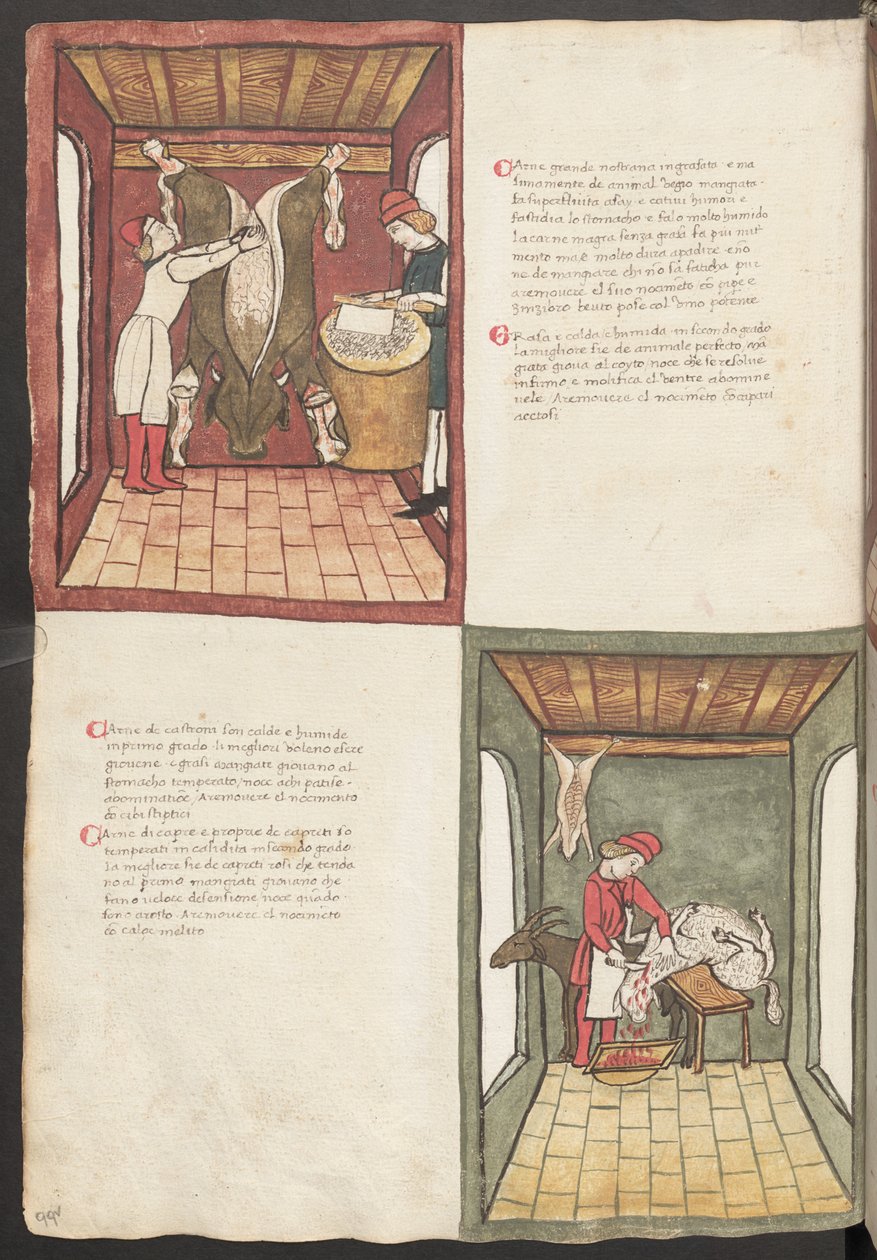 Carne grande nostrana ingrasata · e ma
simamente de animal vegio mangiata ·
fa superfluita asay · e cativi humori e
fastidia lo stomacho e falo molto humido
La carne magra senza grasa fa piu nut
mento ma e molto dura apadire · e
ne de mangiare chi nõ fa faticha pur
aremovere el suo nocimẽto cõ pipe e
Zinzibro beuto pose col vino potente
Grasa e calda e humida · in secondo grado
La migliore sie de animale perfecto mã
giata giova al coyto / noce che se resolve
infumo e molifica el ventre abomine
vele / Aremovere el nocimẽto cõ capari
acetosi
Carne de castroni son calde e humide
inprimo grado · li megliori voleno esere
giovene · e grasi mangiate giovano al
stomacho temperato / noce achi patise ·
abominatiõe / Aremovere el nocimento
cõ cibi stiptici
Carne di capre e proprie de capreti so
temperati in calidita insecondo grado ·
La megliore sie de capreti rosi che tenda
no al primo mangiati giovano che ·
fano veloce desensione noce quãdo ·
sono arosto · Aremovere el nocimẽto
cõ caloe melito
99v